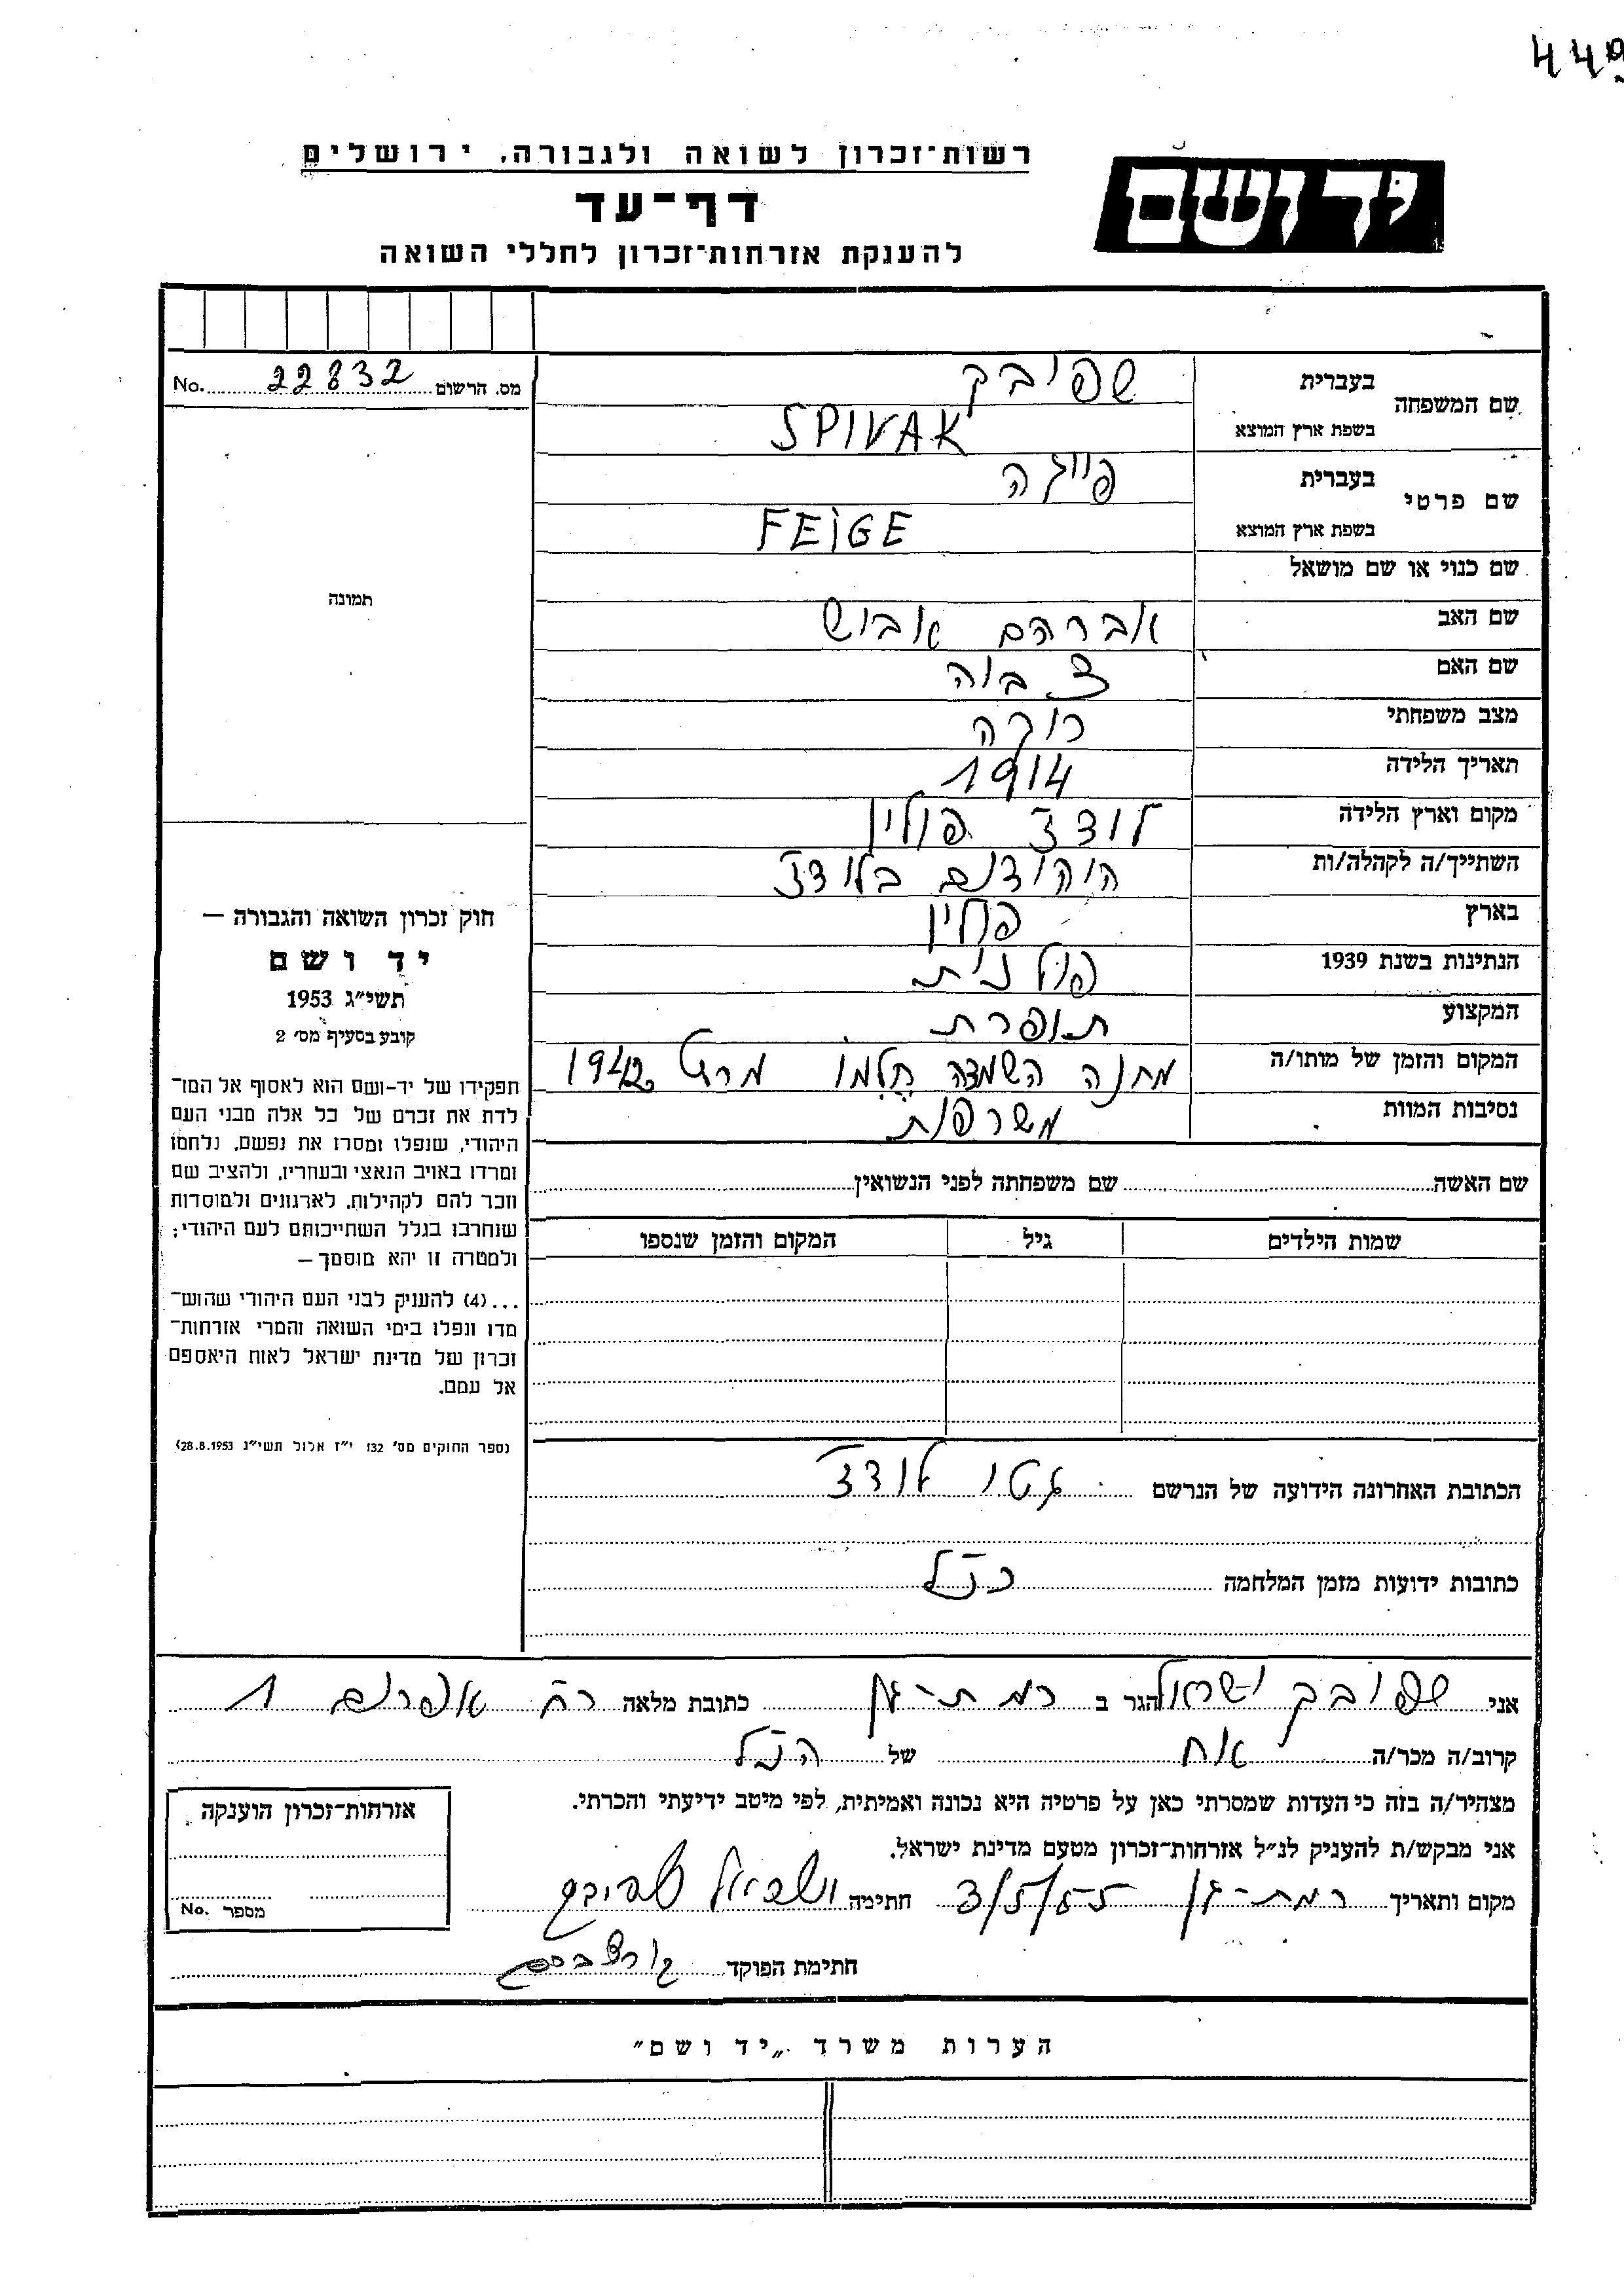 449
רשות־זכרון לשואה ולגבורה, ירושלים
יד ושם
דף־עד
להענקת אזרחות־זכרון לחללי השואה
מס. הרשום 22832 No.
שם המשפחה בעברית שפיבק
בשפת ארץ המוצא SPIVAK
שם פרטי בעברית פייגה
בשפת ארץ המוצא FEIGE
שם כנוי או שם מושאל
תמונה
שם האב אברהם אבוש
שם האם
מצב משפחתי רוקה
תאריך הלידה 1914
מקום וארץ הלידה לודז פולין
השתייך/ה לקהלה/ות היהודים בלודז
בארץ פולין
הנתינות בשנת 1939 פולנית
המקצוע תופרת
המקום והזמן של מותו/ה מחנה השמדה חלמו מרץ 1942
נסיבות המוות משרפות
חוק זכרון השואה והגבורה —
יד ושם
תשי״ג 1953
קובע בסעיף מס׳ 2
תפקידו של יד-ושם הוא לאסוף אל המו־
לדת את זכרם של כל אלה מבני העם
היהודי, שנפלו ומסרו את נפשם, נלחמו
ומרדו באויב הנאצי ובעוזריו, ולהציב שם
וזכר להם לקהילות, לארגונים ולמוסדות
שנחרבו בגלל השתייכותם לעם היהודי;
ולמטרה זו יהא מוסמך —
...(4) להעניק לבני העם היהודי שהוש־
מדו ונפלו בימי השואה והמרי אזרחות־
זכרון של מדינת ישראל לאות היאספם
אל עמם.
(ספר החוקים מס׳ 132 י״ז אלול תשי״ג 28.8.1953)
שם האשה שם משפחתה לפני הנשואין
שמות הילדים גיל המקום והזמן שנספו
הכתובת האחרונה הידועה של הנרשם גטו לודז
כתובות ידועות מזמן המלחמה כנ"ל
אני שפיבק ישראל הגר ב רמת-גן כתובת מלאה רח אפרים 1
קרוב/ה מכר/ה אח של הנ"ל
מצהיר/ה בזה כי העדות שמסרתי כאן על פרטיה היא נכונה ואמיתית, לפי מיטב ידיעתי והכרתי.
אני מבקש/ת להעניק לנ״ל אזרחות־זכרון מטעם מדינת ישראל.
מקום ותאריך רמת-גן 3/5/55 חתימה ישראל שפיבק
חתימת הפוקד
אזרחות־זכרון הוענקה
מספר No.
הערות משרד „יד ושם״